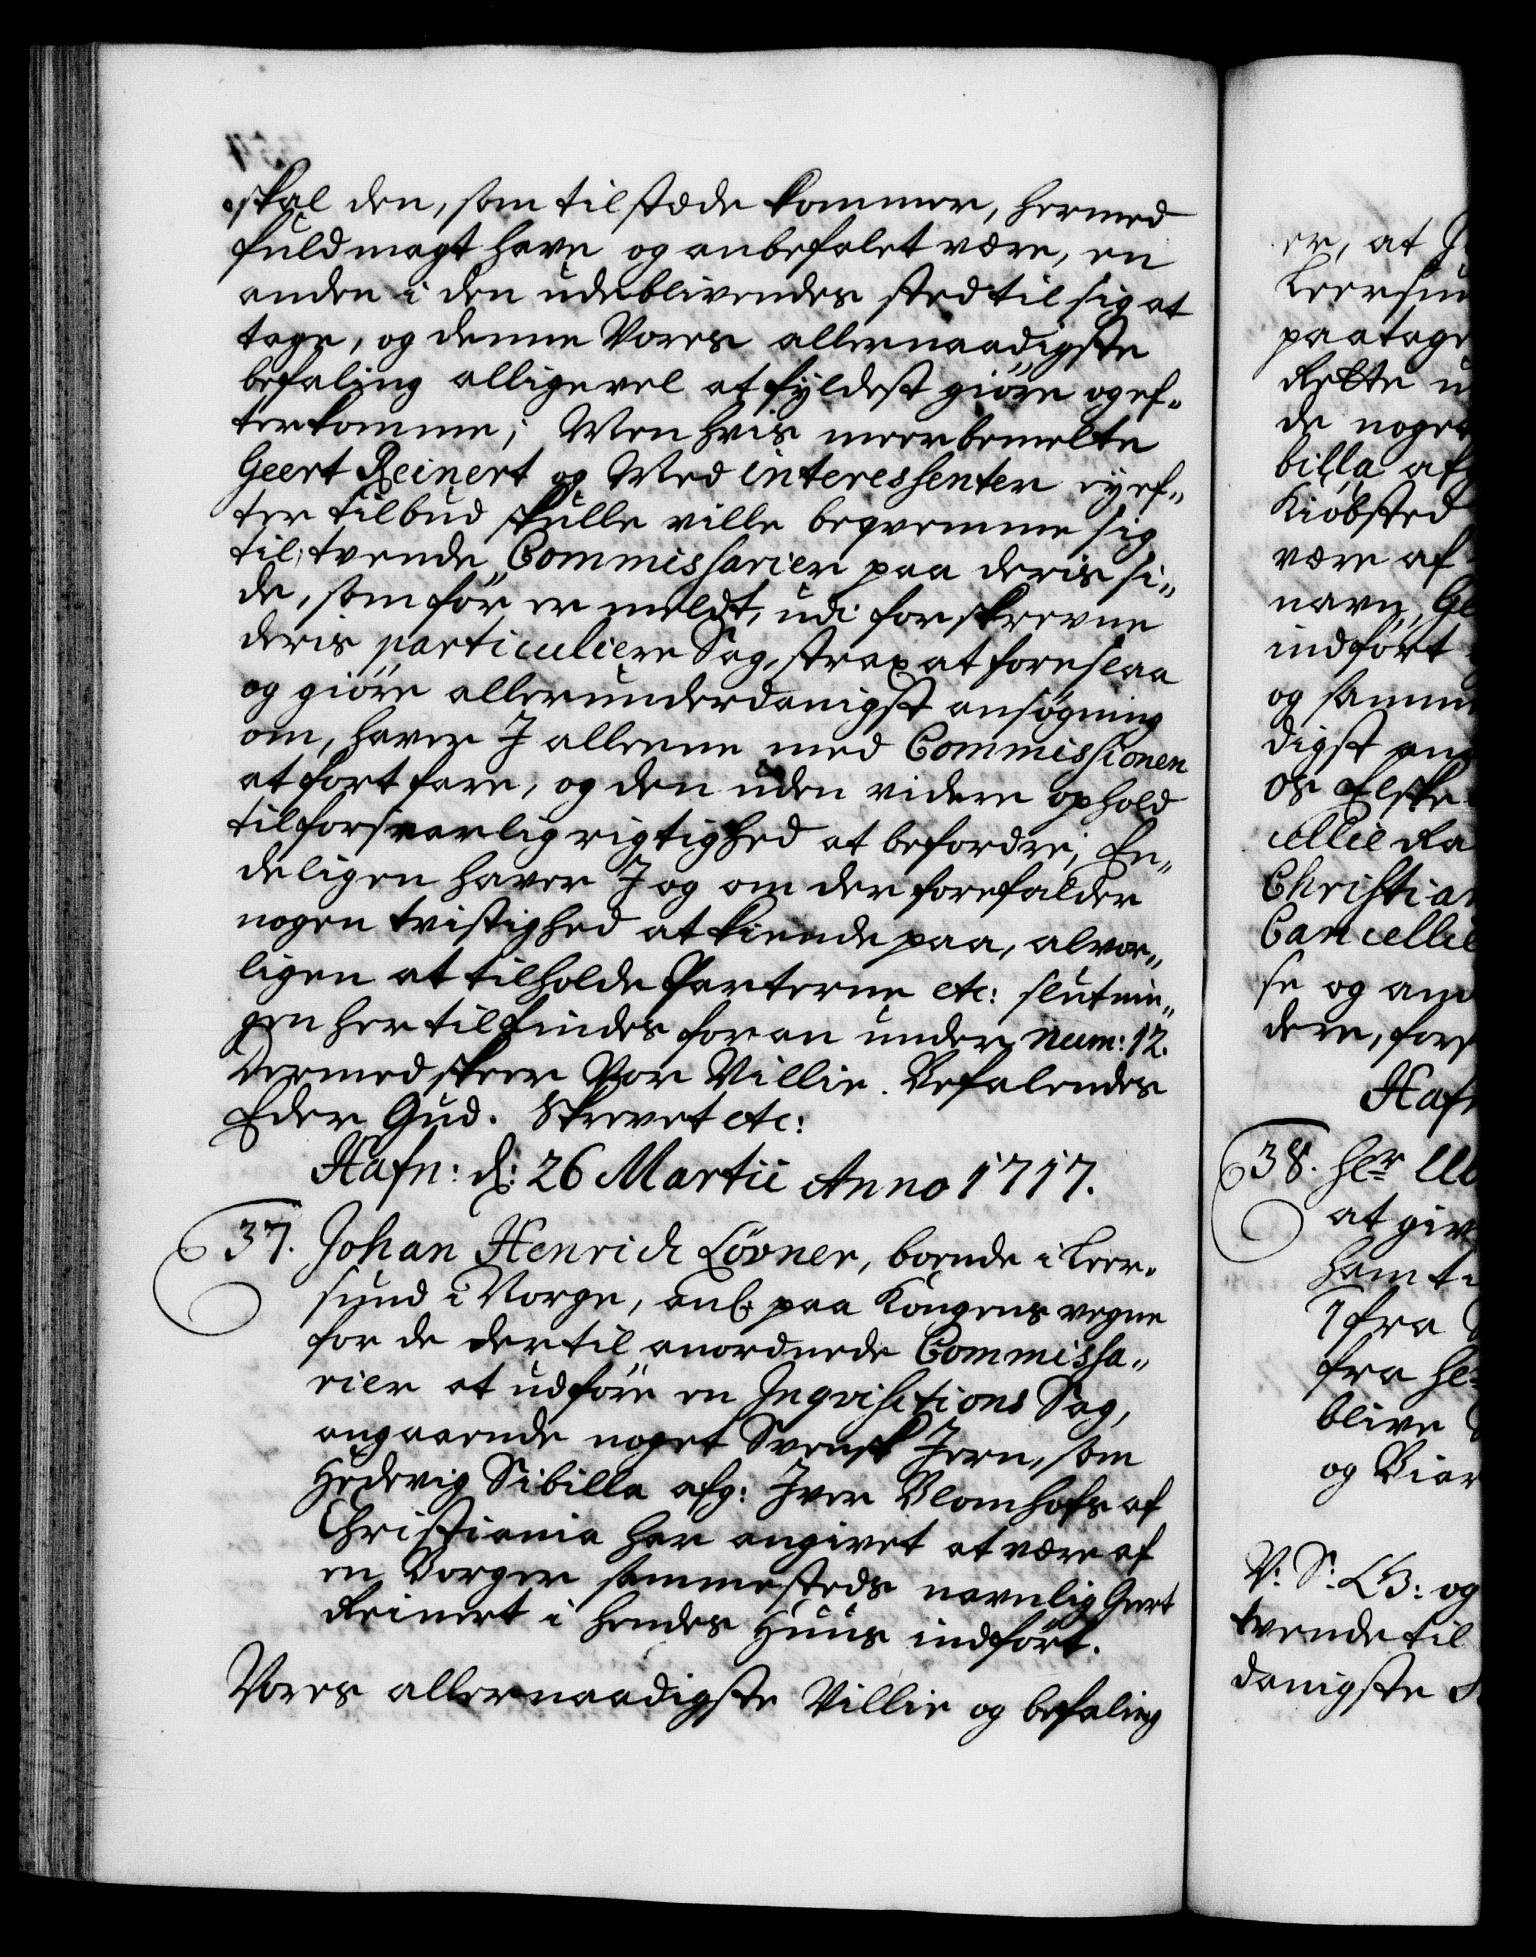 skal den, som tilstæde kommer, hermed
fuldmagt have og anbefalet være, en
anden i den udeblivendes sted til sig at
tage, og denne Vores allernaadigste
befaling alligevel at fyldest giöre og ef„
terkomme; Men hvis meerbemelte
Geert Reinert og Med interessenter ey ef„
ter tilbud skulle ville beqvemme sig
til, tvende Commissarier paa deris si„
de, som för er meldt, udi forskrevne
deris particuliere Sag, strax at foreslaa
og giöre allerunderdanigst ansøgning
om, haver I alleene med Commissionen
at fortfare, og den uden videre ophold
til forsvarlig rigtighed at befordre; En„
deligen haver I og om der forefalder
nogen tvistighed at kiende paa, alvor„
ligen at tilholde Parterne etc: slutnin„
gen hertil findes foran under Num: 12.
Dermed skeer Vor Villie. Befalendes
Eder Gud. Skrevet etc:
Hafn: d: 26 Martii Anno 1717.
37. Johan Henrich Lövner, boende i Leer„
sund i Norge, anb: paa Kongens vegne
for de dertil anordnede Commissa„
rier at udföre en Inqvisitions Sag,
angaaende noget Svensk Jern, som
Hedevig Sibilla afg: Iver Blomhofs af
Christiania har angivet at være af
en Borger sammesteds navnlig Geert
Reinert i hendes Huus indfört.
Vores allernaadigste Villie og befaling
er, at
paatage
Rette
de noget
billa af
Kiöbsted
være af
navn,
indfört
og samme
digst
os Elske
Christian
Cancellie
se og
dere,
Hafn
38. Her
at giv
ham
7 fra
fra
blive
og
V: S: G B: og
tvende til
danigste